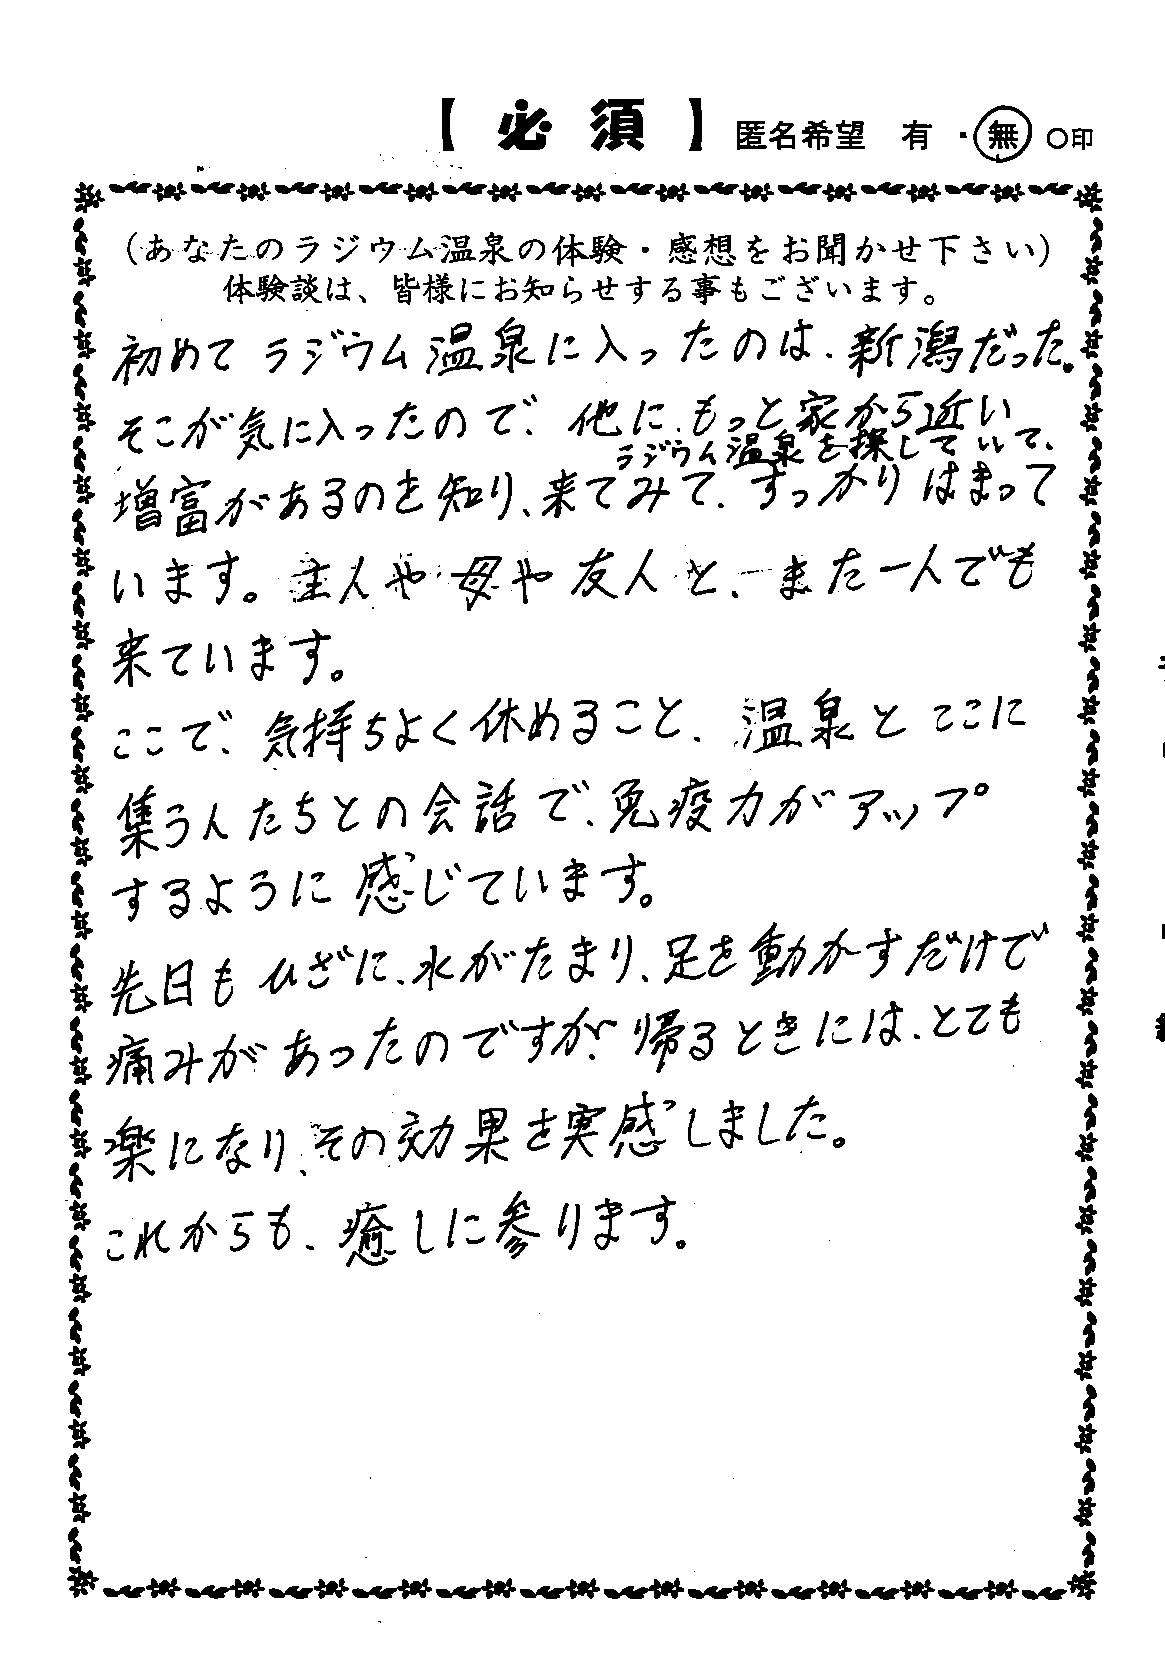 【必須】匿名希望 有・無 ○印
(あなたのラジウム温泉の体験・感想をお聞かせ下さい)
体験談は、皆様にお知らせする事もございます。
初めてラジウム温泉に入ったのは、新潟だった。
そこが気に入ったので、他に、もっと家から近い
ラジウム温泉を探していて、
増富があるのを知り、来てみて、すっかりはまって
います。主人や母や友人と、また一人でも
来ています。
ここで、気持ちよく休めること、温泉とここに
集う人たちとの会話で、免疫力がアップ
するように感じています。
先日もひざに、水がたまり、足を動かすだけで
痛みがあったのですが、帰るときには、とても
楽になり、その効果を実感しました。
これからも、癒しに参ります。